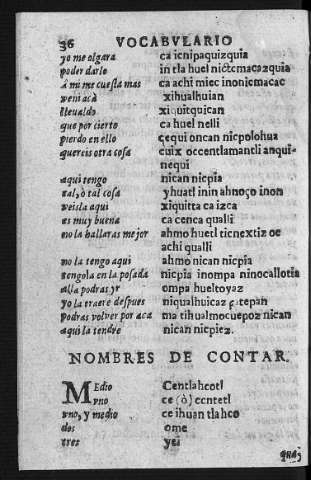 36 VOCABVLARIO
yo me olgara ca icnipaquizquia
poder darlo in tla huel nictemacazquia
A mi me cuesta mas ca achi miec inonicmacac
veni acà xihualhuian
lleualdo xicuitquican
que por cierto ca huel nelli
pierdo en ello cequi oncan nicpolohua
quereis otra cosa cuix occentlamantli anqui-
nequi
aqui tengo nican nicpia
tal, ò tal cosa yhuatl inin ahnoço inon
veisla aqui xiquitta ca izca
es muy buena ca cenca qualli
no la hallaras mejor ahmo huetl ticnextiz oc
achi qualli
no la tengo aqui ahmo nican nicpia
tengola en la posada nicpia inompa ninocallotia
alla podras yr ompa hueltoyaz
yo la traere despues niqualhuicaz çatepan
podras volver por aca ma tihualmocuepoz nican
aqui la tendre nican nicpiez.
NOMBRES DE CONTAR.
MEdio Centlahcotl
vno ce (ò) centetl
vno, y medio ce ihuan tlahco
dos ome
tres yei